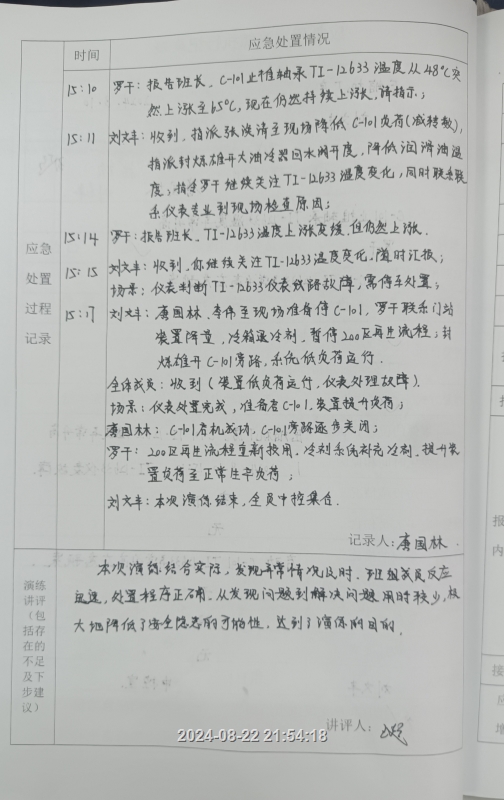 应急处置情况
时间
15:10 罗干：报告班长，C-101止推轴承TI-12633温度从48℃突
然上涨至65℃，现在仍然持续上涨，请指示；
15:11 刘文丰：收到，指派张波清至现场降低C-101负荷(减转数)，
指派封炼雄开大油冷器回水阀开度，降低润滑油温
度；指令罗干继续关注TI-12633温度变化，同时联系联
系仪表专业到现场检查原因；
15:14 罗干：报告班长，TI-12633温度上涨变缓，但仍然上涨.
15:15 刘文丰：收到，你继续关注TI-12633温度变化，随时汇报；
场景：仪表判断TI-12633仪表线路故障，需停车处置；
15:17 刘文丰：唐国林、李伟至现场准备停C-101，罗干联系门站
装置降量，冷箱退冷剂，暂停200区再生流程；封
炼雄开C-101旁路，系统低负荷运行.
全体成员：收到(装置低负荷运行，仪表处理故障).
场景：仪表处置完成，准备启C-101，装置提升负荷；
唐国林：C-101启机成功，C-101旁路逐步关闭；
罗干：200区再生流程重新投用，冷剂系统补充冷剂，提升装
置负荷至正常生产负荷；
刘文丰：本次演练结束，全员中控集合.
应急
处置
过程
记录
记录人：唐国林
本次演练结合实际，发现异常情况及时，班组成员反应
迅速，处置程序正确，从发现问题到解决问题用时较少，极
大地降低了安全隐患的可能性，达到了演练的目的.
演练
讲评
（包
括存
在的
不足
及下
步建
议）
讲评人：
2024-08-22 21:54:18
报
内
接
应
地